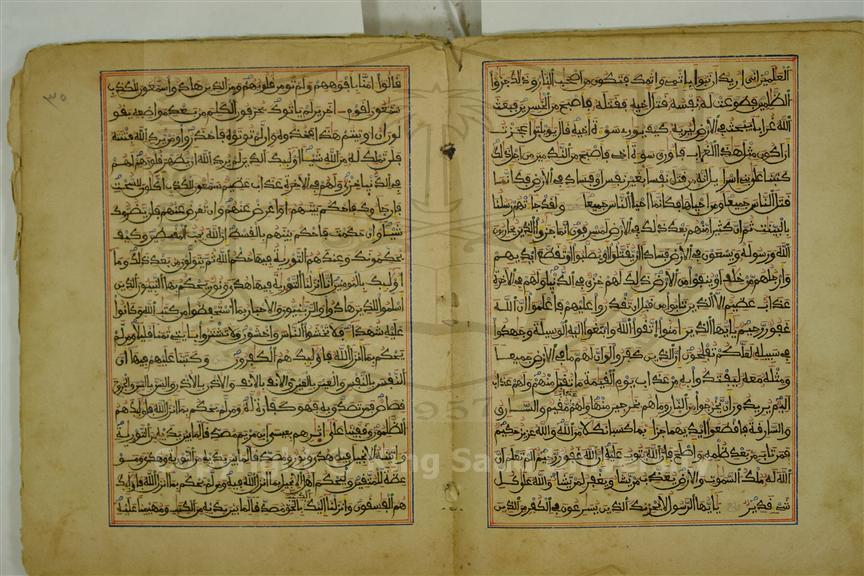 العلمين اني اريد ان تبوا باثمي واثمك فتكون من اصحب النار وذلك جزوا
الظلمين فطوعت له نفسه قتل اخيه فقتله فاصبح من الخسرين فبعث
الله غرابا يبحث في الارض ليريه كيف يوري سوة اخيه قال يويلتى اعجزت
ان اكون مثل هذا الغراب فاوري سوة اخي فاصبح من الندمين من اجل ذلك
كتبنا على بني اسرايل انه من قتل نفسا بغير نفس او فساد في الارض فكانما
قتل الناس جميعا ومن احياها فكانما احيا الناس جميعا ولقد جاتهم رسلنا
بالبينت ثم ان كثيرا منهم بعد ذلك في الارض لمسرفون انما جزوا الذين يحاربون
الله ورسوله ويسعون في الارض فسادا ان يقتلوا او يصلبوا او تقطع ايديهم
وارجلهم من خلف او ينفوا من الارض ذلك لهم خزي في الدنيا ولهم في الاخرة
عذاب عظيم الا الذين تابوا من قبل ان تقدروا عليهم فاعلموا ان الله
غفور رحيم يايها الذين امنوا اتقوا الله وابتغوا اليه الوسيلة وجهدوا
في سبيله لعلكم تفلحون ان الذين كفروا لو ان لهم ما في الارض جميعا
ومثله معه ليفتدوا به من عذاب يوم القيمة ما تقبل منهم ولهم عذاب
اليم يريدون ان يخرجوا من النار وما هم بخرجين منها ولهم عذاب مقيم والسارق
والسارقة فاقطعوا ايديهما جزا بما كسبا نكلا من الله والله عزيز حكيم
فمن تاب من بعد ظلمه واصلح فان الله يتوب عليه ان الله غفور رحيم الم تعلم ان
الله له ملك السموت والارض يعذب من يشا ويغفر لمن يشا والله على كل
شي قدير يايها الرسول لا يحزنك الذين يسرعون في الكفر من الذين
٣٠
قالوا امنا بافوههم ولم تومن قلوبهم ومن الذين هادوا سمعون للكذب
سمعون لقوم اخرين لم ياتوك يحرفون الكلم من بعد مواضعه يقو
لون ان اوتيتم هذا فخذوه وان لم توتوه فاحذروا ومن يرد الله فتنته
فلن تملك له من الله شيا اوليك الذين لم يرد الله ان يطهر قلوبهم لهم
في الدنيا خزي ولهم في الاخرة عذاب عظيم سمعون للكذب اكلون للسحت
فان جاوك فاحكم بينهم او اعرض عنهم وان تعرض عنهم فلن يضروك
شيا وان حكمت فاحكم بينهم بالقسط ان الله يحب المقسطين وكيف
يحكمونك وعندهم التورية فيها حكم الله ثم يتولون من بعد ذلك وما
اوليك بالمومنين انا انزلنا التورية فيها هدى ونور يحكم بها النبيون الذين
اسلموا للذين هادوا والربنيون والاحبار بما استحفظوا من كتب الله وكانوا
عليه شهدا فلا تخشوا الناس واخشون ولا تشتروا بايتي ثمنا قليلا ومن لم
يحكم بما انزل الله فاوليك هم الكفرون وكتبنا عليهم فيها ان
النفس بالنفس والعين بالعين والانف بالانف والاذن بالاذن والسن بالسن والجروح
قصاص فمن تصدق به فهو كفارة له ومن لم يحكم بما انزل الله فاوليك هم
الظلمون وقفينا على اثرهم بعيسى ابن مريم مصدقا لما بين يديه من التورية
واتينه الانجيل فيه هدى ونور ومصدقا لما بين يديه من التورية وهدى ومو
عظة للمتقين وليحكم اهل الانجيل بما انزل الله فيه ومن لم يحكم بما انزل الله فاوليك
هم الفسقون وانزلنا اليك الكتب بالحق مصدقا لما بين يديه من الكتب ومهيمنا عليه
Copyright © King Saud University
1957